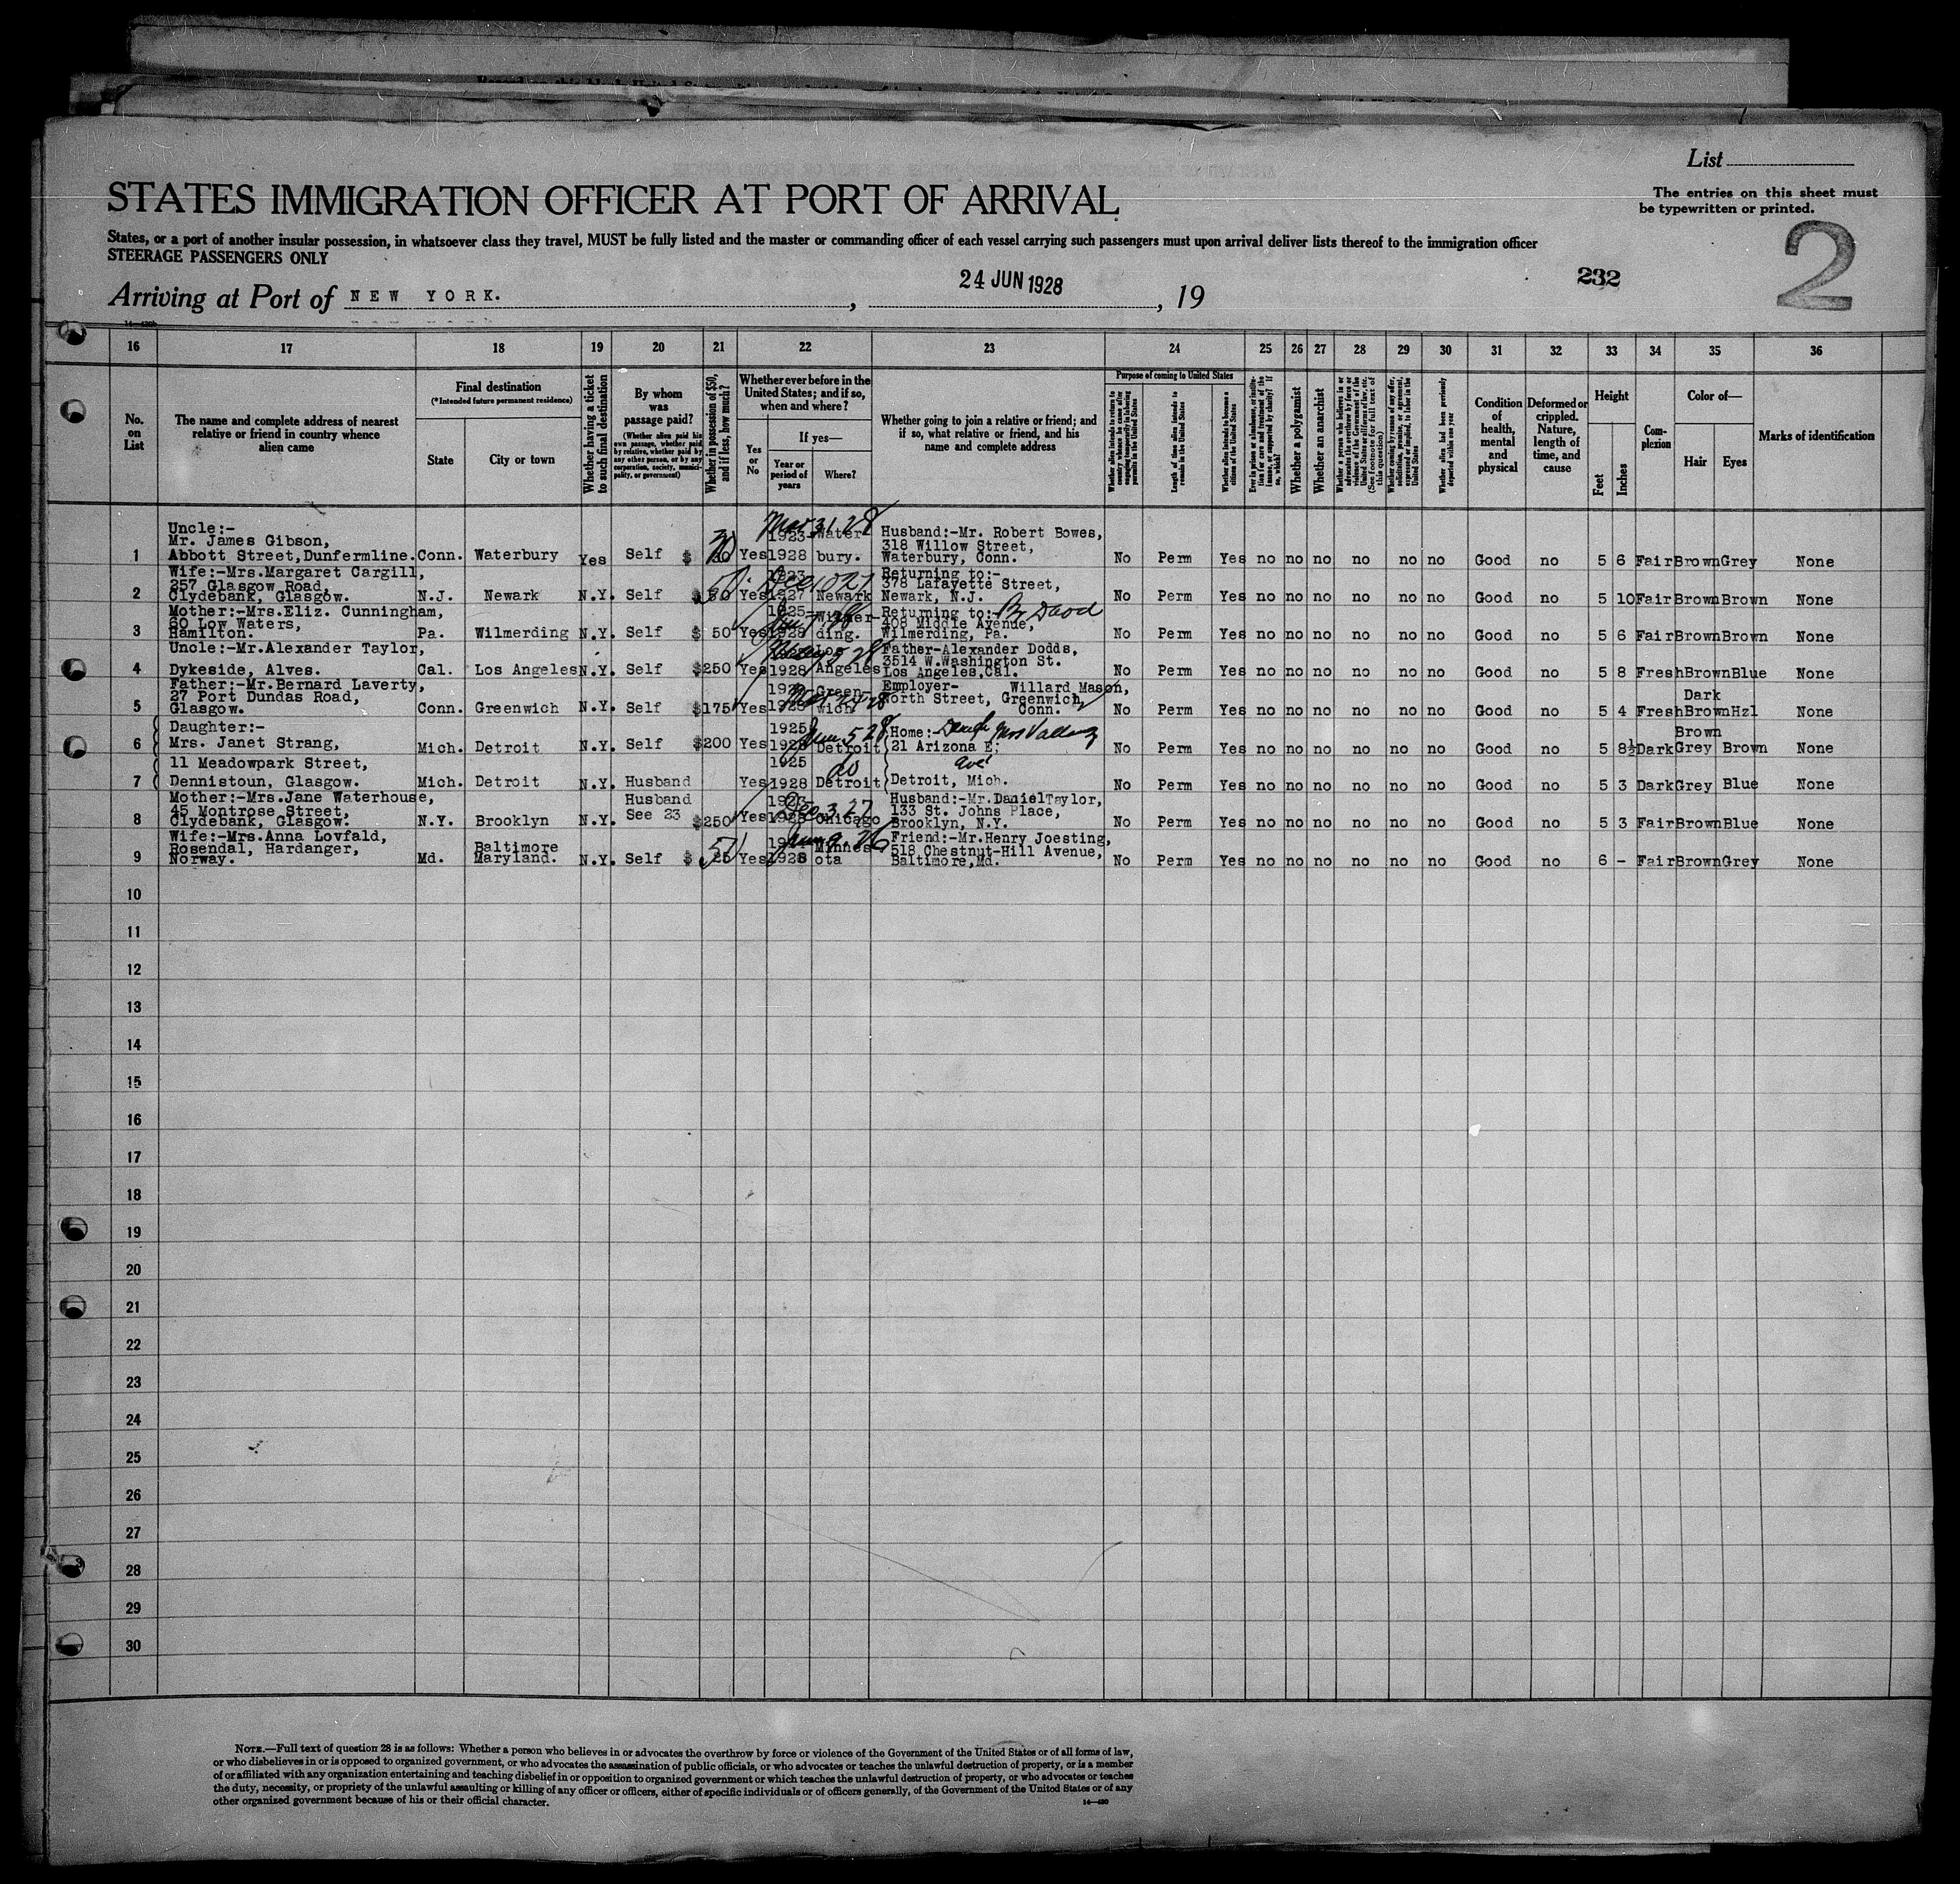 List
STATES IMMIGRATION OFFICER AT PORT OF ARRIVAL
The entries on this sheet must
be typewritten or printed.
States, or a port of another insular possession, in whatsoever class they travel, MUST be fully listed and the master or commanding officer of each vessel carrying such passengers must upon arrival deliver lists thereof to the immigration officer
STEERAGE PASSENGERS ONLY
2
232
Arriving at Port of NEW YORK. , 24 JUN 1928 , 19
16 17 18 19 20 21 22 23 24 25 26 27 28 29 30 31 32 33 34 35 36
No. on List
The name and complete address of nearest
relative or friend in country whence
alien came
Final destination
(*Intended future permanent residence)
State
City or town
Whether having a ticket
to such final destination
By whom
was
passage paid?
(Whether alien paid his
own passage, whether paid
by relative, whether paid by
any other person, or by any
corporation, society, munici-
pality, or government)
Whether in possession of $50,
and if less, how much?
Whether ever before in the
United States; and if so,
when and where?
Yes
or
No
If yes—
Year or
period of
years
Where?
Whether going to join a relative or friend; and
if so, what relative or friend, and his
name and complete address
Purpose of coming to United States
Length of time alien intends to
remain in the United States
Whether alien intends to become a
citizen of the United States
Whether a polygamist
Whether an anarchist
Whether alien had been previously
deported within one year
Condition
of
health,
mental
and
physical
Deformed or
crippled.
Nature,
length of
time, and
cause
Height
Feet
Inches
Com-
plexion
Color of—
Hair
Eyes
Marks of identification
Uncle:-
Mr. James Gibson,
1 Abbott Street,Dunfermline. Conn. Waterbury Yes Self $ Yes 1923-1928 Waterbury. Mar 31 28
Husband:-Mr. Robert Bowes,
318 Willow Street,
Waterbury, Conn. No Perm Yes no no no no no no Good no 5 6 Fair Brown Grey None
Wife:-Mrs.Margaret Cargill,
257 Glasgow Road,
2 Clydebank, Glasgow. N.J. Newark N.Y. Self $ 50 Yes 1927 Newark
Returning to:-
378 Lafayette Street,
Newark, N.J. No Perm Yes no no no no no no Good no 5 10 Fair Brown Brown None
Mother:-Mrs.Eliz. Cunningham,
60 Low Waters,
3 Hamilton. Pa. Wilmerding N.Y. Self $ 50 Yes 1925-1928 Wilmerding.
Returning to:-
408 Middle Avenue,
Wilmerding, Pa. No Perm Yes no no no no no no Good no 5 6 Fair Brown Brown None
Uncle:-Mr.Alexander Taylor,
4 Dykeside, Alves. Cal. Los Angeles N.Y. Self $250 Yes 1928 Los Angeles
Father-Alexander Dodds,
3514 W.Washington St.
Los Angeles,Cal. No Perm Yes no no no no no no Good no 5 8 Fresh Brown Blue None
Father:-Mr.Bernard Laverty,
27 Port Dundas Road,
5 Glasgow. Conn. Greenwich N.Y. Self $175 Yes 1928 Greenwich
Employer- Willard Mason,
North Street, Greenwich,
Conn. No Perm Yes no no no no no no Good no 5 4 Fresh Dark Brown Hzl None
Daughter:-
6 Mrs. Janet Strang, Mich. Detroit N.Y. Self $200 Yes 1925 1928 Detroit
Home:-
21 Arizona E; Ave. No Perm Yes no no no no no no Good no 5 8½ Dark Brown Grey Brown None
11 Meadowpark Street,
7 Dennistoun, Glasgow. Mich. Detroit N.Y. Husband Yes 1925 1928 Detroit do
Detroit, Mich. No Perm Yes no no no no no no Good no 5 3 Dark Grey Blue None
Mother:-Mrs.Jane Waterhouse,
45 Montrose Street,
8 Clydebank, Glasgow. N.Y. Brooklyn N.Y. Husband See 23 $250 Yes Chicago Dec 3 27
Husband:-Mr.Daniel Taylor,
133 St. Johns Place,
Brooklyn, N.Y. No Perm Yes no no no no no no Good no 5 3 Fair Brown Blue None
Wife:-Mrs.Anna Lovfald,
Rosendal, Hardanger,
9 Norway. Md. Baltimore Maryland. N.Y. Self $ Yes 1928 Minnesota
Friend:-Mr.Henry Joesting,
518 Chestnut-Hill Avenue,
Baltimore,Md. No Perm Yes no no no no no no Good no 6 - Fair Brown Grey None
10
11
12
13
14
15
16
17
18
19
20
21
22
23
24
25
26
27
28
29
30
NOTE.—Full text of question 28 is as follows: Whether a person who believes in or advocates the overthrow by force or violence of the Government of the United States or of all forms of law,
or who disbelieves in or is opposed to organized government, or who advocates the assassination of public officials, or who advocates or teaches the unlawful destruction of property, or is a member
of or affiliated with any organization entertaining and teaching disbelief in or opposition to organized government or which teaches the unlawful destruction of property, or who advocates or teaches
the duty, necessity, or propriety of the unlawful assaulting or killing of any officer or officers, either of specific individuals or of officers generally, of the Government of the United States or of any
other organized government because of his or their official character.